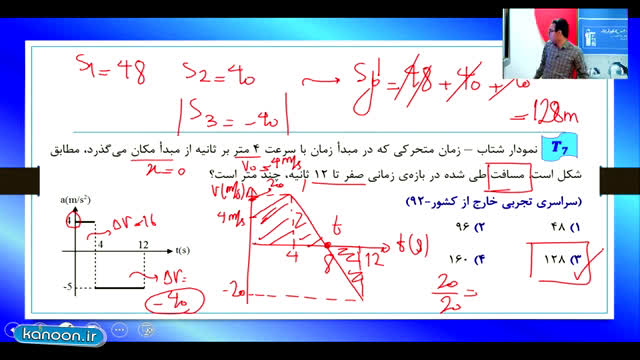 S1 = 48 S2 = 40 → = 48 + 40 + 40
|S3 = -40| = 128m
T7 نمودار شتاب – زمان متحرکی که در مبدأ زمان با سرعت ۴ متر بر ثانیه از مبدأ مکان می‌گذرد، مطابق
x=0 V0=4m/s
شکل است. مسافت طی شده در بازه‌ی زمانی صفر تا ۱۲ ثانیه، چند متر است؟
(سراسری تجربی خارج از کشور-۹۲)
۱) ۴۸ ۲) ۹۶
۳) ۱۲۸ ۴) ۱۶۰
a(m/s²)
4
ΔV=16
4 12 t(s)
-5
ΔV=
-40
V(m/s) 20
4m/s
t
4 8 12 t(s)
-20
20/20 =
kanoon.ir